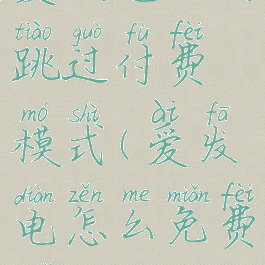 tiào guò fù fèi
跳过付费
mó shì ài fā
模式(爱发
diàn zěn me miǎn fèi
电怎么免费